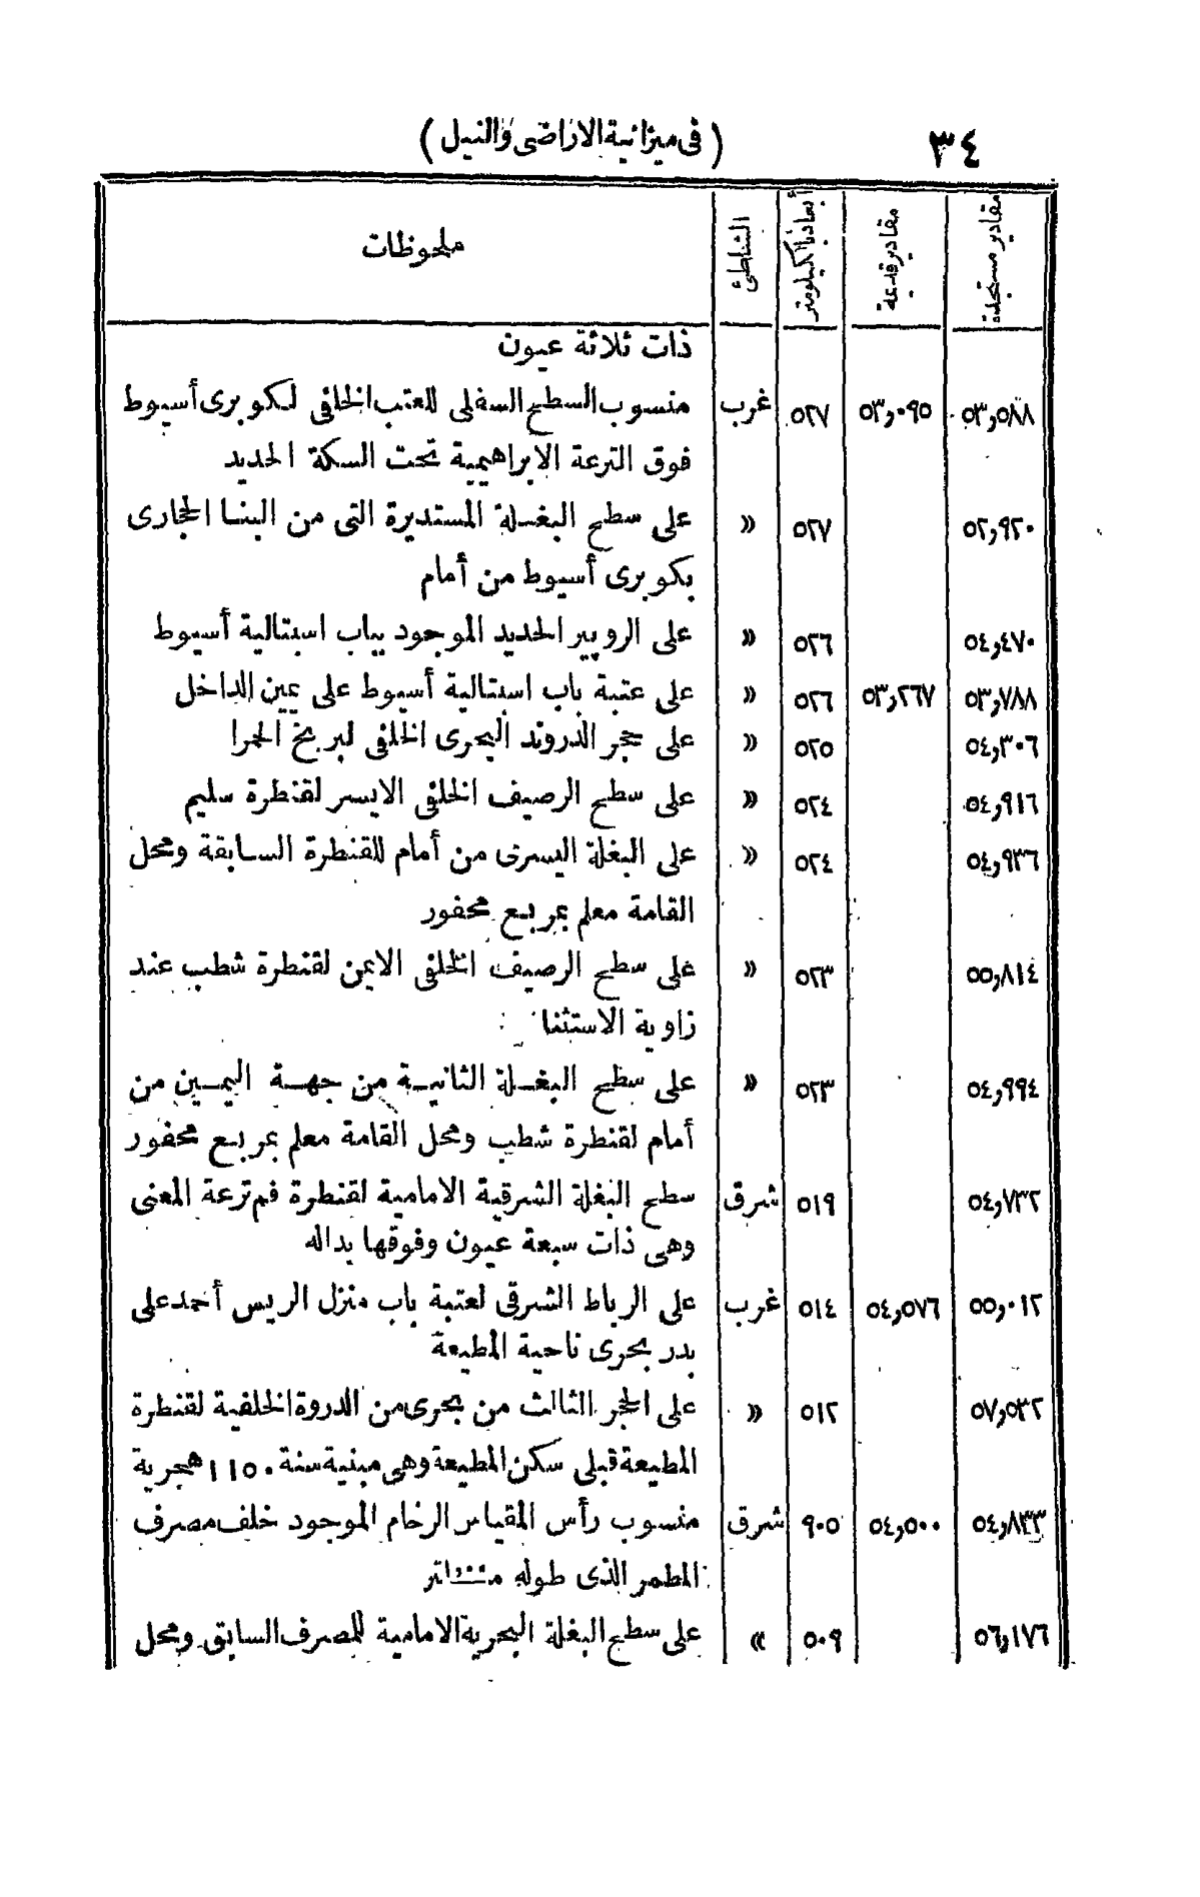 ٣٤ (فى ميزانية الاراضى والنيل)
مقادير مستجدة مقادير قديمة أبعاد بالكيلومتر الشاطئ ملحوظات
ذات ثلاثة عيون
٥٣,٥٨٨ ٥٣,٠٩٥ ٥٢٧ غرب منسوب السطح السفلى للعتب الخلفى لكوبرى أسيوط
فوق الترعة الابراهيمية تحت السكة الحديد
٥٢,٩٢٠ ٥٢٧ « على سطح البغلة المستديرة التى من البنا الحجارى
بكوبرى أسيوط من أمام
٥٤,٤٧٠ ٥٢٦ « على الروپير الحديد الموجود بباب اسبتالية أسيوط
٥٣,٧٨٨ ٥٣,٢٦٧ ٥٢٦ « على عتبة باب اسبتالية أسيوط على يمين الداخل
٥٤,٣٠٦ ٥٢٥ « على حجر الدروند البحرى الخلفى لبربخ الحمرا
٥٤,٩١٦ ٥٢٤ « على سطح الرصيف الخلفى الايسر لقنطرة سليم
٥٤,٩٣٦ ٥٢٤ « على البغلة اليسرى من أمام للقنطرة السابقة ومحل
القامة معلم بمربع محفور
٥٥,٨١٤ ٥٢٣ « على سطح الرصيف الخلفى الايمن لقنطرة شطب عند
زاوية الاستثنا
٥٤,٩٩٤ ٥٢٣ « على سطح البغلة الثانية من جهة اليمين من
أمام لقنطرة شطب ومحل القامة معلم بمربع محفور
٥٤,٧٣٢ ٥١٩ شرق سطح البغلة الشرقية الامامية لقنطرة فم ترعة المعنى
وهى ذات سبعة عيون وفوقها بداله
٥٥,٠١٢ ٥٤,٥٧٦ ٥١٤ غرب على الرباط الشرقى لعتبة باب منزل الريس أحمد على
بدر بحرى ناحية المطيعة
٥٧,٥٣٢ ٥١٢ « على الحجر الثالث من بحرى من الدروة الخلفية لقنطرة
المطيعة قبلى سكن المطيعة وهى مبنية سنة ١١٥٠ هجرية
٥٤,٨٣٣ ٥٤,٥٠٠ ٩٠٥ شرق منسوب رأس المقياس الرخام الموجود خلف مصرف
المطمر الذى طوله
٥٦,١٧٦ ٥٠٩ » على سطح البغلة البحرية الامامية للمصرف السابق ومحل